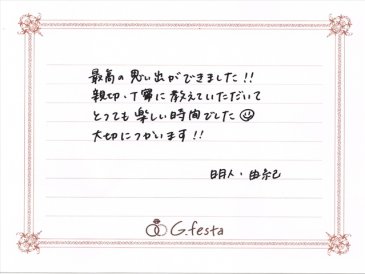 最高の思い出ができました!!
親切、丁寧に教えていただいて
とっても楽しい時間でした
大切につかいます!!
明人・由紀
G.festa